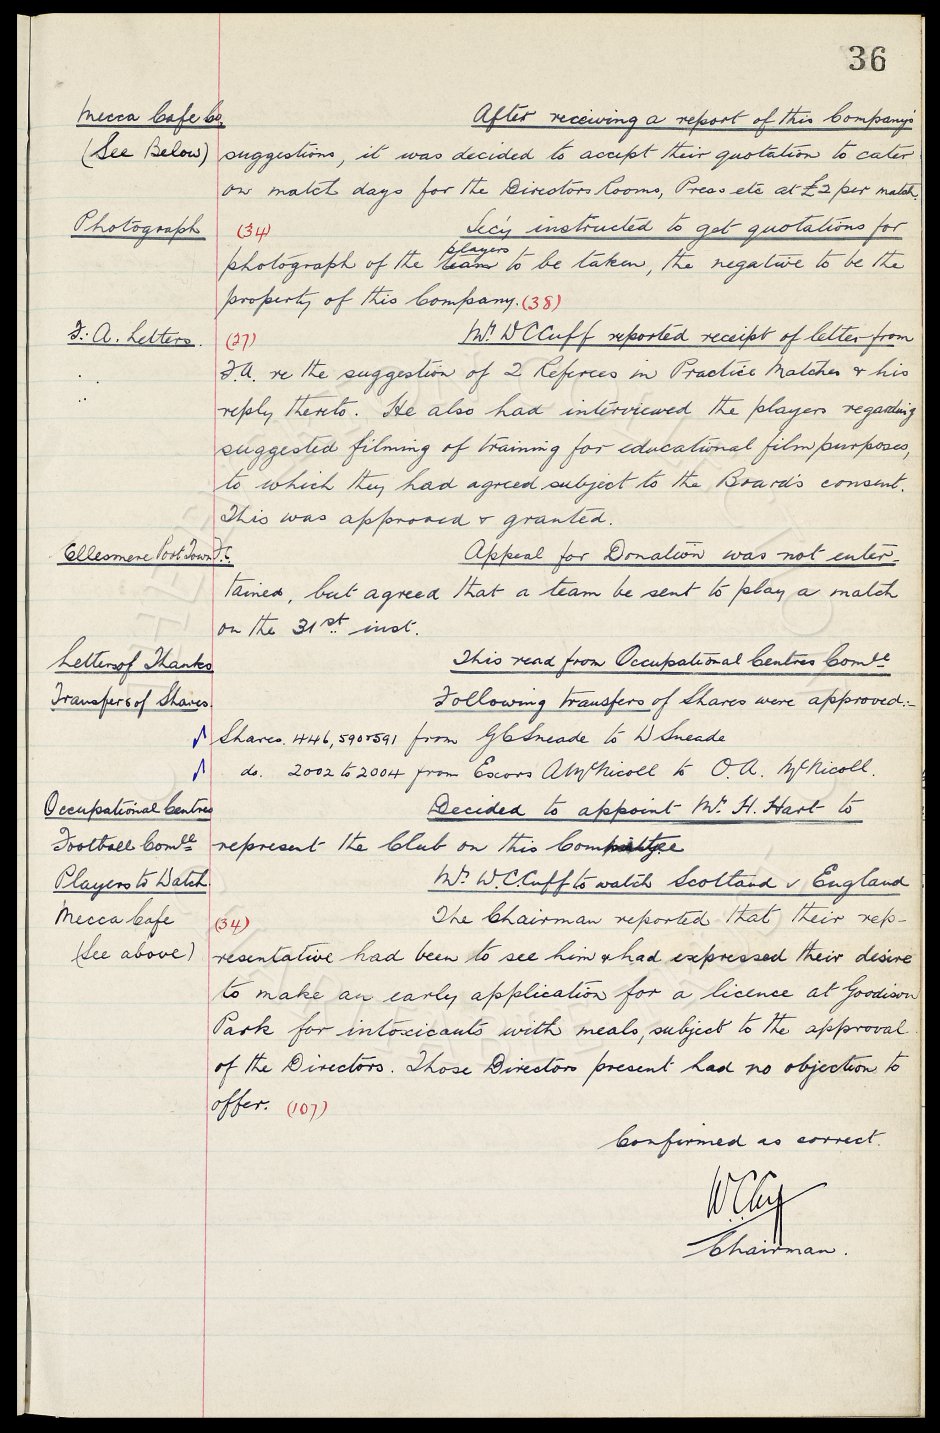 36
Mecca Cafe Co. After receiving a report of this Company's
(See Below) suggestions, it was decided to accept their quotation to cater
on match days for the Directors Rooms, Press etc at £2 per match.
Photograph (34) Sec'y instructed to get quotations for
players
photograph of the team to be taken, the negative to be the
property of this Company. (38)
F. A. Letters. (27) Mr. W C Cuff reported receipt of letter from
F.A. re the suggestion of 2 Referees in Practice Matches & his
reply thereto. He also had interviewed the players regarding
suggested filming of training for educational film purposes,
to which they had agreed subject to the Board's consent.
This was approved & granted.
Ellesmere Port Town F.C. Appeal for Donation was not enter-
tained, but agreed that a team be sent to play a match
on the 31st. inst.
Letters of Thanks This read from Occupational Centres Comee
Transfers of Shares. Following transfers of Shares were approved:-
Shares. 446, 590 & 591 from G C Sneade to W Sneade
do. 2002 to 2004 from Exors A McNicoll to O. A. McNicoll.
Occupational Centres Decided to appoint Mr. H. Hart to
Football Comee represent the Club on this Committee
Players to Watch. Mr. W. C. Cuff to watch Scotland v England
Mecca Cafe (34) The Chairman reported that their rep-
(See above) resentative had been to see him & had expressed their desire
to make an early application for a licence at Goodison
Park for intoxicants with meals, subject to the approval
of the Directors. Those Directors present had no objection to
offer. (107)
Confirmed as correct.
W. C. Cuff
Chairman.